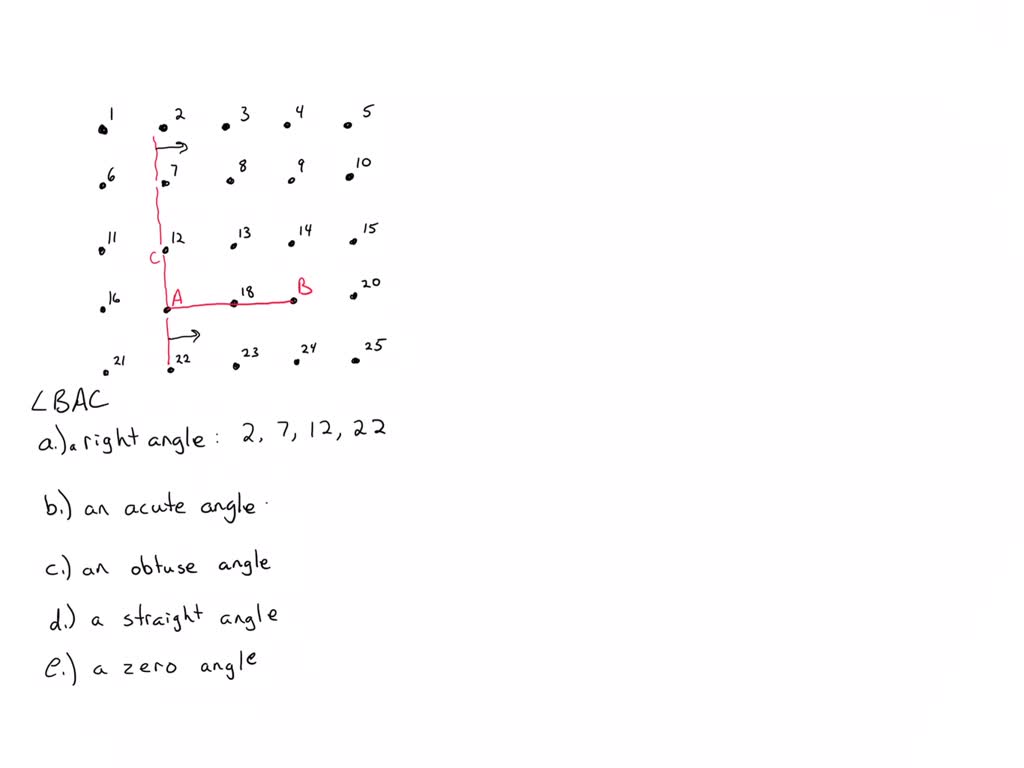 1 2 3 4 5
6 7 8 9 10
11 12 13 14 15
C
16 A 18 B 20
21 22 23 24 25
∠BAC
a.) a right angle : 2, 7, 12, 22
b.) an acute angle.
c.) an obtuse angle
d.) a straight angle
e.) a zero angle